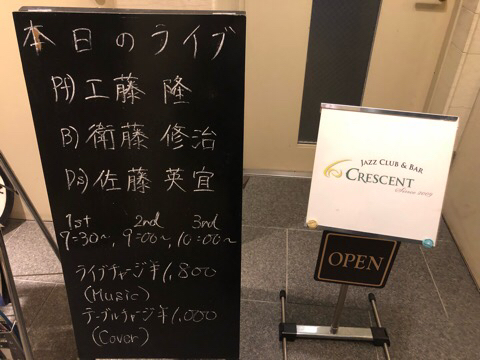 本日のライブ
Pf) 工藤 隆
B) 衛藤 修治
Ds) 佐藤 英宜
1st 2nd 3rd
7:30~, 9:00~, 10:00~
ライブチャージ ¥1,800
(Music)
テーブルチャージ ¥1,000
(Cover)
JAZZ CLUB & BAR
CRESCENT
Since 2009
OPEN